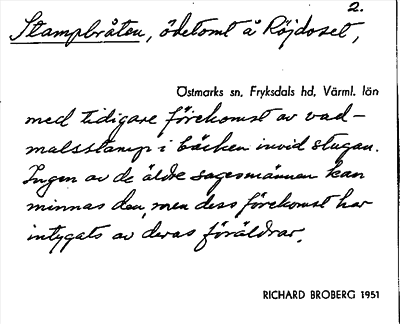 2.
Stampbråten, ödetomt å Röjdoset,
Östmarks sn, Fryksdals hd, Värml. län
med tidigare förekomst av vad-
malsstamp i bäcken invid stugan.
Ingen av de äldre sagesmännen kan
minnas den, men dess förekomst har
intygats av deras föräldrar.
RICHARD BROBERG 1951